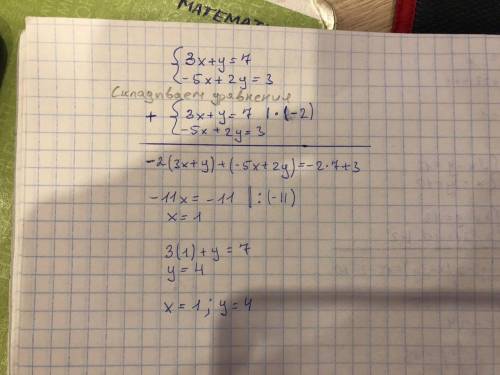 МАТЕМАТ
3x+y=7
-5x+2y=3
Складываем уравнения
+ 3x+y=7 |·(-2)
-5x+2y=3
-2(3x+y)+(-5x+2y)=-2·7+3
-11x=-11 |:(-11)
x=1
3(1)+y=7
y=4
x=1; y=4